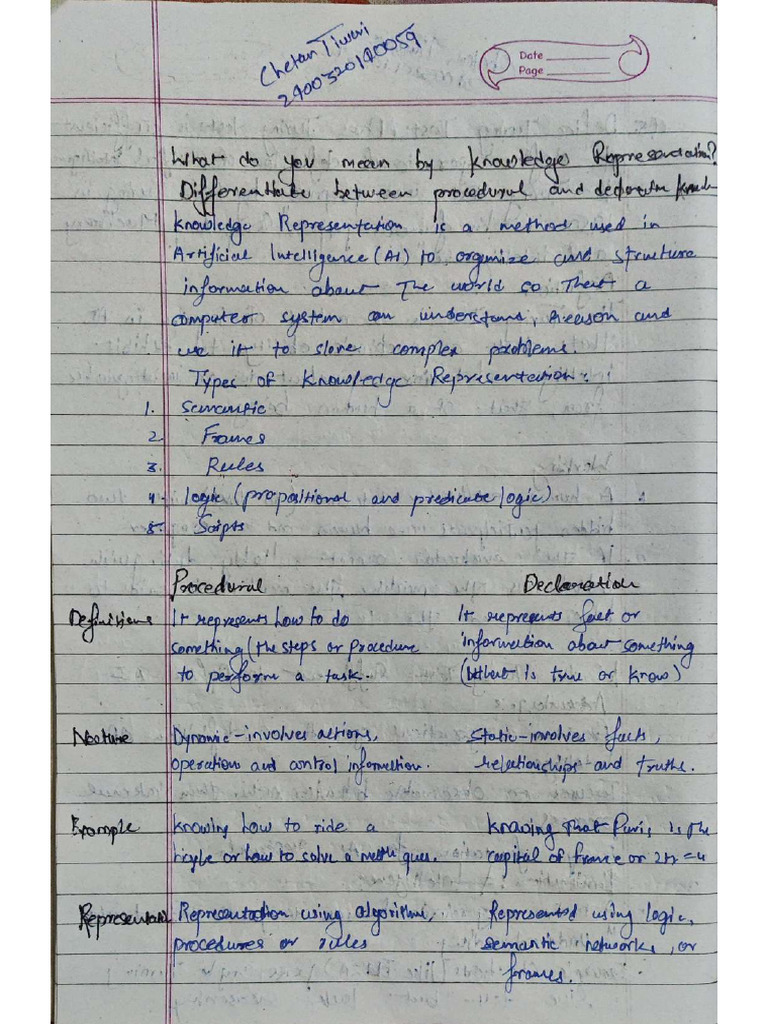 Chetan Tiwari
Date
Page
What do you mean by knowledge Representation?
Differentiate between procedural and declarative
knowledge Representation is a method used in
Artificial Intelligence (AI) to organize and structure
information about The world so That a
computer system can understand, reason and
use it to slove complex problems.
Types of knowledge Representation:
1. Semantic
2. Frames
3. Rules
4. logic (propositional and predicate logic)
5. Scipts
Procedural Declaration
Definitions It represents how to do It represents fact or
something (the steps or procedure information about something
to perform a task. (what is true or know)
Nature Dynamic-involves actions, Static-involves facts,
operation and control information. relationships and truths.
Example knowing how to ride a knowing that Paris is the
bicyle or how to solve a math ques. capital of france or 2+2=4
Representation using algorithm, Represented using logic,
procedures or rules semantic networks, or
frames.